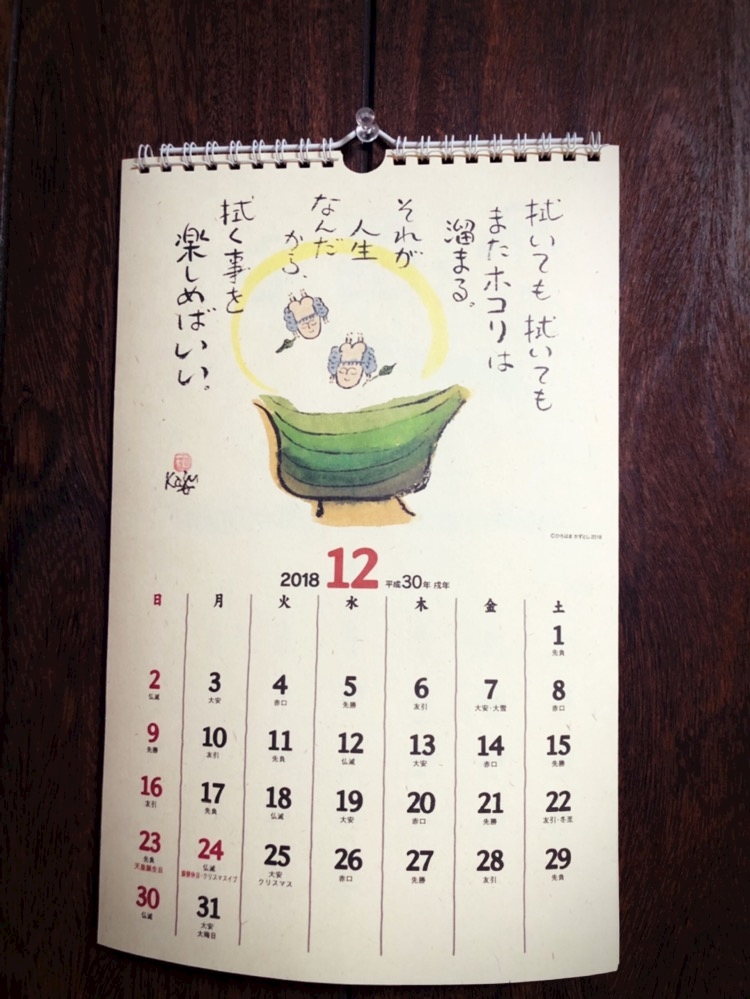 拭いても拭いても
またホコリは
溜まる。
それが
人生
なんだ
から、
拭く事を
楽しめばいい。
Kazu
©ひろはま かずとし 2018
2018 12 平成30年 戌年
日 月 火 水 木 金 土
1
先負
2 3 4 5 6 7 8
仏滅 大安 赤口 先勝 友引 大安・大雪 赤口
9 10 11 12 13 14 15
先勝 友引 先負 仏滅 大安 赤口 先勝
16 17 18 19 20 21 22
友引 先負 仏滅 大安 赤口 先勝 友引・冬至
23 24 25 26 27 28 29
先負 仏滅 大安 赤口 先勝 友引 先負
天皇誕生日 振替休日・クリスマスイブ クリスマス
30 31
仏滅 大安
大晦日